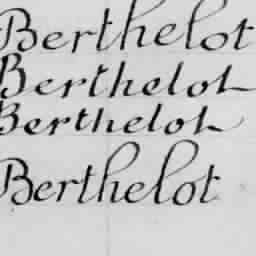 Berthelot
Berthelot
Berthelot
Berthelot